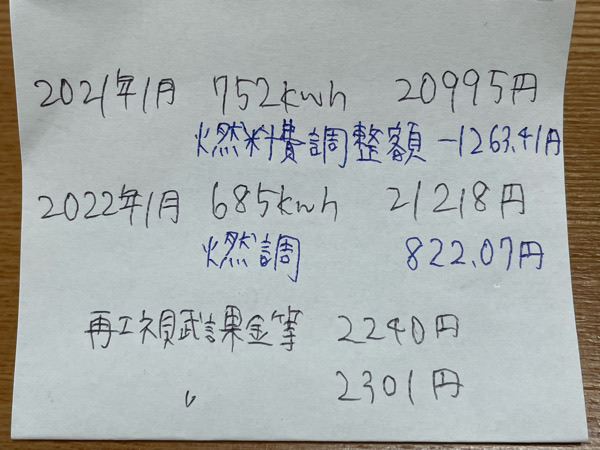 2021年1月 752kwh 20995円
燃料費調整額 -1263.41円
2022年1月 685kwh 21218円
燃調 822.07円
再エネ賦課金等 2240円
〃 2301円